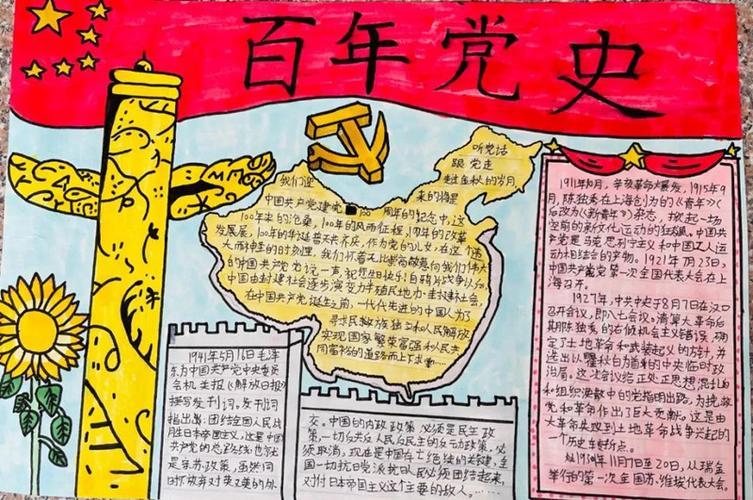 百年党史
听党话
跟党走
走过金秋的岁月,
我们迎 来的将是
中国共产党建党100周年的纪念日,这
100年来的沧桑,100年的风雨征程,1周年的改革
发展层,100年的华诞普天共齐庆,作为党的儿女,在这个伟
大而神圣的时刻里,我们怀着无比
中国共产党说一声,祝您生日快乐!自鸦片战争以后,
中国由封建社会逐步演变为半殖民地为一封建社会,
在中国共产党诞生之前,一代代先进的中国人为了
寻求民族独立和人民解放
实现国家繁荣富强和人民共
同富裕的道路而上下求索……
1911年10月,辛亥革命大爆发,1915年9
月,陈独秀在上海创为的《青年》(
后改为《新青年》)杂志,掀起一场
空前的新文化运动的狂飙。中国共
产党是马克思列宁主义和中国工人运
动相结合的产物。1921年7月23日,
中国共产党第一次全国代表大会在上
海召开。
1927年,中共中央于8月7日在汉口
召开会议,即八七会议。清算大革命后
期陈独秀的右倾机会主义错误,确
定了土地革命和武装起义的方针,并
选出以瞿秋白为首的中央临时政
治局。这次会议给正处于思想混乱
和组织涣散中的党指明出路,为挽救
党和革命作出了巨大贡献。这是由
大革命失败到土地革命战争兴起的
一个历史转折点。
1930年11月7日至20日,从瑞金
举行的第一次全国苏维埃代表大会。
1941年5月16日毛泽
东为中国共产党中央委员
会机关报《解放日报》
撰写发刊词。发刊词
指出:团结全国人民战
胜日本帝国主义,这是中国
共产党的总路线,也就
是 政策,虽然同
时
交。中国的内政政策必须是民主政
策,一切反共反人民反民主的反动政策,必
须取消,现在是中国存亡绝续的关键,全
国一切抗日党派抗日人民必须团结起来,
对付日本帝国主义这个主要的敌人。……